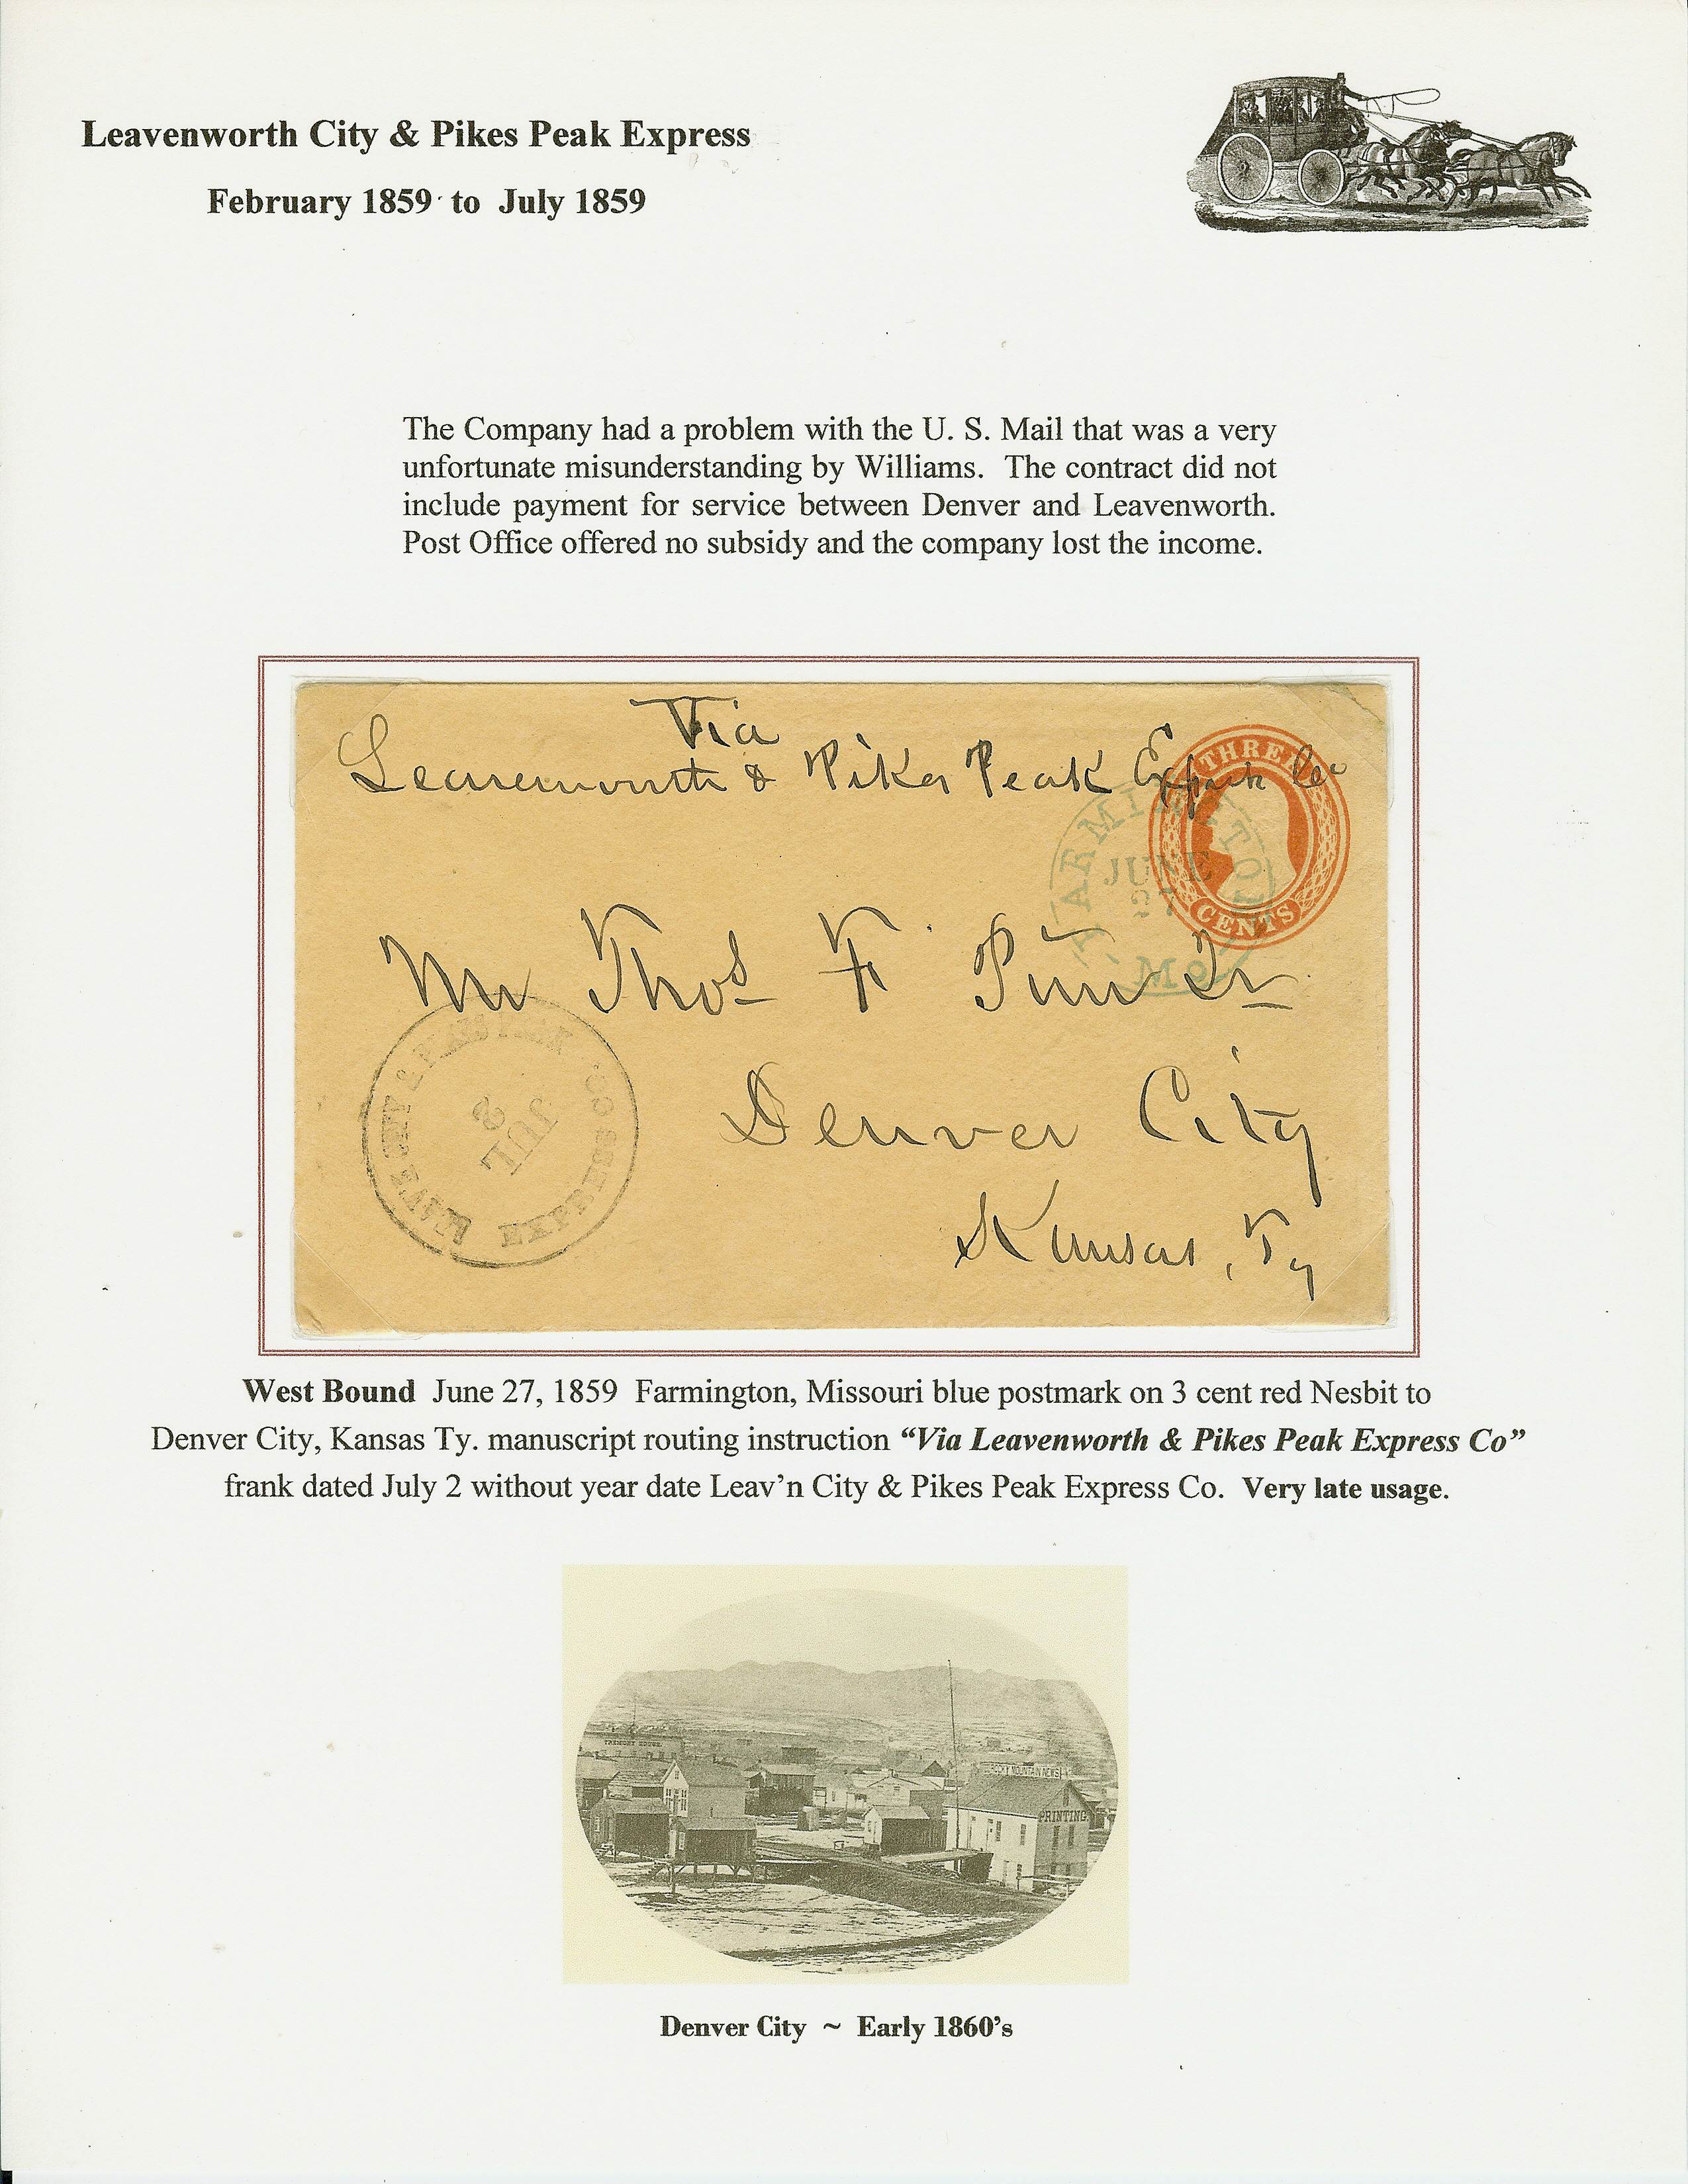 Leavenworth City & Pikes Peak Express
February 1859 to July 1859
The Company had a problem with the U. S. Mail that was a very
unfortunate misunderstanding by Williams. The contract did not
include payment for service between Denver and Leavenworth.
Post Office offered no subsidy and the company lost the income.
Via
Leavenworth & Pikes Peak Express Co
THREE
CENTS
FARMINGTON
JUNE
27
Mo
Mr Thos F. Jr
Denver City
Kansas, Ty
LEAV'N CITY & PIKES PEAK EXPRESS CO
JUL
2
West Bound June 27, 1859 Farmington, Missouri blue postmark on 3 cent red Nesbit to
Denver City, Kansas Ty. manuscript routing instruction “Via Leavenworth & Pikes Peak Express Co”
frank dated July 2 without year date Leav’n City & Pikes Peak Express Co. Very late usage.
TREMONT HOUSE.
ROCKY MOUNTAIN NEWS
PRINTING.
Denver City ~ Early 1860’s